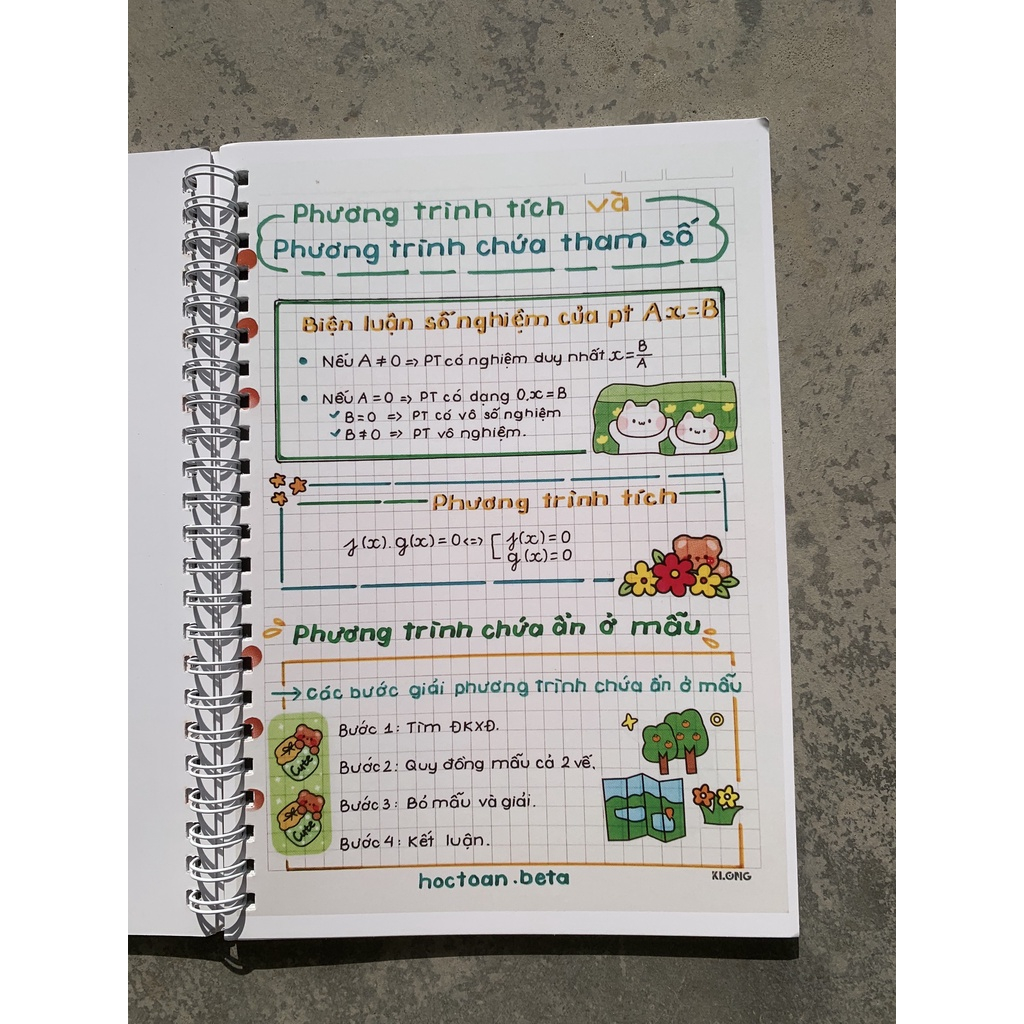 Phương trình tích và
Phương trình chứa tham số
Biện luận số nghiệm của pt Ax=B
• Nếu A ≠ 0 => PT có nghiệm duy nhất x = B/A
• Nếu A = 0 => PT có dạng 0.x = B
✓ B = 0 => PT có vô số nghiệm
✓ B ≠ 0 => PT vô nghiệm.
Phương trình tích
f(x).g(x) = 0 <=> [ f(x) = 0
g(x) = 0
Phương trình chứa ẩn ở mẫu
→ Các bước giải phương trình chứa ẩn ở mẫu
Bước 1: Tìm ĐKXĐ.
Bước 2: Quy đồng mẫu cả 2 vế.
Bước 3: Bỏ mẫu và giải.
Bước 4: Kết luận.
Cute
Cute
hoctoan.beta
KLONG